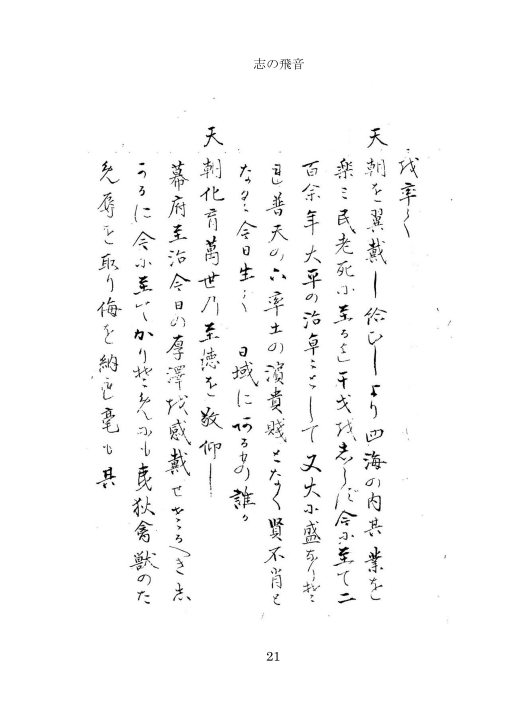 志の飛音
を率て
天朝を翼戴し給ひしより四海の内其業を
楽ミ民老死に至るまて干戈を志らす今に至て二
百余年大平の治卓々として又大に盛なりされ
は普天の下率土の濱貴賤となく賢不肖と
なく今日生て 日域にあるもの誰か
天朝化育萬世の至徳を敬仰し
幕府至治今日の厚澤を感戴せさるへき志
かるに今に至てかりそめにも夷狄禽獣のた
め辱を取り侮を納れ毫も其
21